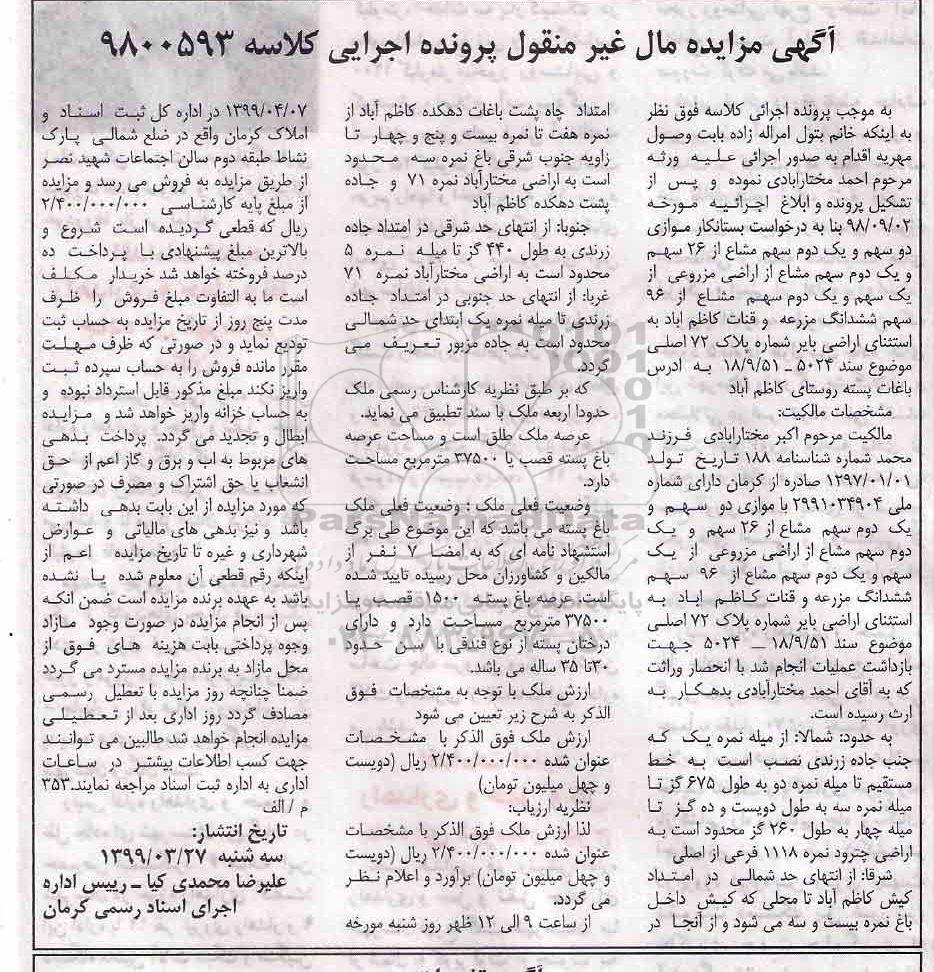 آگهی مزایده مال غیر منقول پرونده اجرایی کلاسه ۹۸۰۰۵۹۳
به موجب پرونده اجرائی کلاسه فوق نظر
به اینکه خانم بتول امراله زاده بابت وصول
مهریه اقدام به صدور اجرائی علیه ورثه
مرحوم احمد مختارابادی نموده و پس از
تشکیل پرونده و ابلاغ اجرائیه مورخه
۹۸/۰۹/۰۲ بنا به درخواست بستانکار موازی
دو سهم و یک دوم سهم مشاع از ۲۶ سهم
و یک دوم سهم مشاع از اراضی مزروعی از
یک سهم و یک دوم سهم مشاع از ۹۶
سهم ششدانگ مزرعه و قنات کاظم اباد به
استثنای اراضی بایر شماره پلاک ۷۲ اصلی
موضوع سند ۵۰۲۴ ـ ۱۸/۹/۵۱ به ادرس
باغات پسته روستای کاظم آباد
مشخصات مالکیت:
مالکیت مرحوم اکبر مختارابادی فرزند
محمد شماره شناسنامه ۱۸۸ تاریخ تولد
۱۲۹۷/۰۱/۰۱ صادره از کرمان دارای شماره
ملی ۲۹۹۱۰۳۴۹۰۴ با موازی دو سهم و
یک دوم سهم مشاع از ۲۶ سهم و یک
دوم سهم مشاع از اراضی مزروعی از یک
سهم و یک دوم سهم مشاع از ۹۶ سهم
ششدانگ مزرعه و قنات کاظم اباد به
استثنای اراضی بایر شماره پلاک ۷۲ اصلی
موضوع سند ۱۸/۹/۵۱ ـ ۵۰۲۴ جهت
بازداشت عملیات انجام شد با انحصار وراثت
که به آقای احمد مختارآبادی بدهکار به
ارث رسیده است.
به حدود: شمالا: از میله نمره یک که
جنب جاده زرندی نصب است به خط
مستقیم تا میله نمره دو به طول ۶۷۵ گز تا
میله نمره سه به طول دویست و ده گز تا
میله چهار به طول ۲۶۰ گز محدود است به
اراضی چترود نمره ۱۱۱۸ فرعی از اصلی
شرقا: از انتهای حد شمالی در امتداد
کیش کاظم آباد تا محلی که کیش داخل
باغ نمره بیست و سه می شود و از آنجا در
امتداد چاه پشت باغات دهکده کاظم آباد از
نمره هفت تا نمره بیست و پنج و چهار تا
زاویه جنوب شرقی باغ نمره سه محدود
است به اراضی مختارآباد نمره ۷۱ و جاده
پشت دهکده کاظم آباد
جنوبا: از انتهای حد شرقی در امتداد جاده
زرندی به طول ۴۴۰ گز تا میله نمره ۵
محدود است به اراضی مختارآباد نمره ۷۱
غربا: از انتهای حد جنوبی در امتداد جاده
زرندی تا میله نمره یک ابتدای حد شمالی
محدود است به جاده مزبور تعریف می
گردد.
که بر طبق نظریه کارشناس رسمی ملک
حدودا اربعه ملک با سند تطبیق می نماید.
عرصه ملک طلق است و مساحت عرصه
باغ پسته قصب یا ۳۷۵۰۰ مترمربع مساحت
دارد.
وضعیت فعلی ملک : وضعیت فعلی ملک
باغ پسته می باشد که این موضوع طی برگ
استشهاد نامه ای که به امضا ۷ نفر از
مالکین و کشاورزان محل رسیده تایید شده
است. عرصه باغ پسته ۱۵۰۰ قصب یا
۳۷۵۰۰ مترمربع مساحت دارد و دارای
درختان پسته از نوع فندقی با سن حدود
۳۰تا ۳۵ ساله می باشد.
ارزش ملک با توجه به مشخصات فوق
الذکر به شرح زیر تعیین می شود
ارزش ملک فوق الذکر با مشخصات
عنوان شده ۲/۴۰۰/۰۰۰/۰۰۰ ریال (دویست
و چهل میلیون تومان)
نظریه ارزیاب:
لذا ارزش ملک فوق الذکر با مشخصات
عنوان شده ۲/۴۰۰/۰۰۰/۰۰۰ ریال (دویست
و چهل میلیون تومان) برآورد و اعلام نظر
می گردد.
از ساعت ۹ الی ۱۲ ظهر روز شنبه مورخه
۱۳۹۹/۰۴/۰۷ در اداره کل ثبت اسناد و
املاک کرمان واقع در ضلع شمالی پارک
نشاط طبقه دوم سالن اجتماعات شهید نصر
از طریق مزایده به فروش می رسد و مزایده
از مبلغ پایه کارشناسی ۲/۴۰۰/۰۰۰/۰۰۰
ریال که قطعی گردیده است شروع و
بالاترین مبلغ پیشنهادی با پرداخت ده
درصد فروخته خواهد شد خریدار مکلف
است ما به التفاوت مبلغ فروش را ظرف
مدت پنج روز از تاریخ مزایده به حساب ثبت
تودیع نماید و در صورتی که ظرف مهلت
مقرر مانده فروش را به حساب سپرده ثبت
واریز نکند مبلغ مذکور قابل استرداد نبوده و
به حساب خزانه واریز خواهد شد و مزایده
ابطال و تجدید می گردد. پرداخت بدهی
های مربوط به اب و برق و گاز اعم از حق
انشعاب یا حق اشتراک و مصرف در صورتی
که مورد مزایده از این بابت بدهی داشته
باشد و نیز بدهی های مالیاتی و عوارض
شهرداری و غیره تا تاریخ مزایده اعم از
اینکه رقم قطعی آن معلوم شده یا نشده
باشد به عهده برنده مزایده است ضمن انکه
پس از انجام مزایده در صورت وجود مازاد
وجوه پرداختی بابت هزینه های فوق از
محل مازاد به برنده مزایده مسترد می گردد
ضمنا چنانچه روز مزایده با تعطیل رسمی
مصادف گردد روز اداری بعد از تعطیلی
مزایده انجام خواهد شد طالبین می توانند
جهت کسب اطلاعات بیشتر در ساعات
اداری به اداره ثبت اسناد مراجعه نمایند.۳۵۳
م / الف
تاریخ انتشار:
سه شنبه ۱۳۹۹/۰۳/۲۷
علیرضا محمدی کیا ـ رییس اداره
اجرای اسناد رسمی کرمان